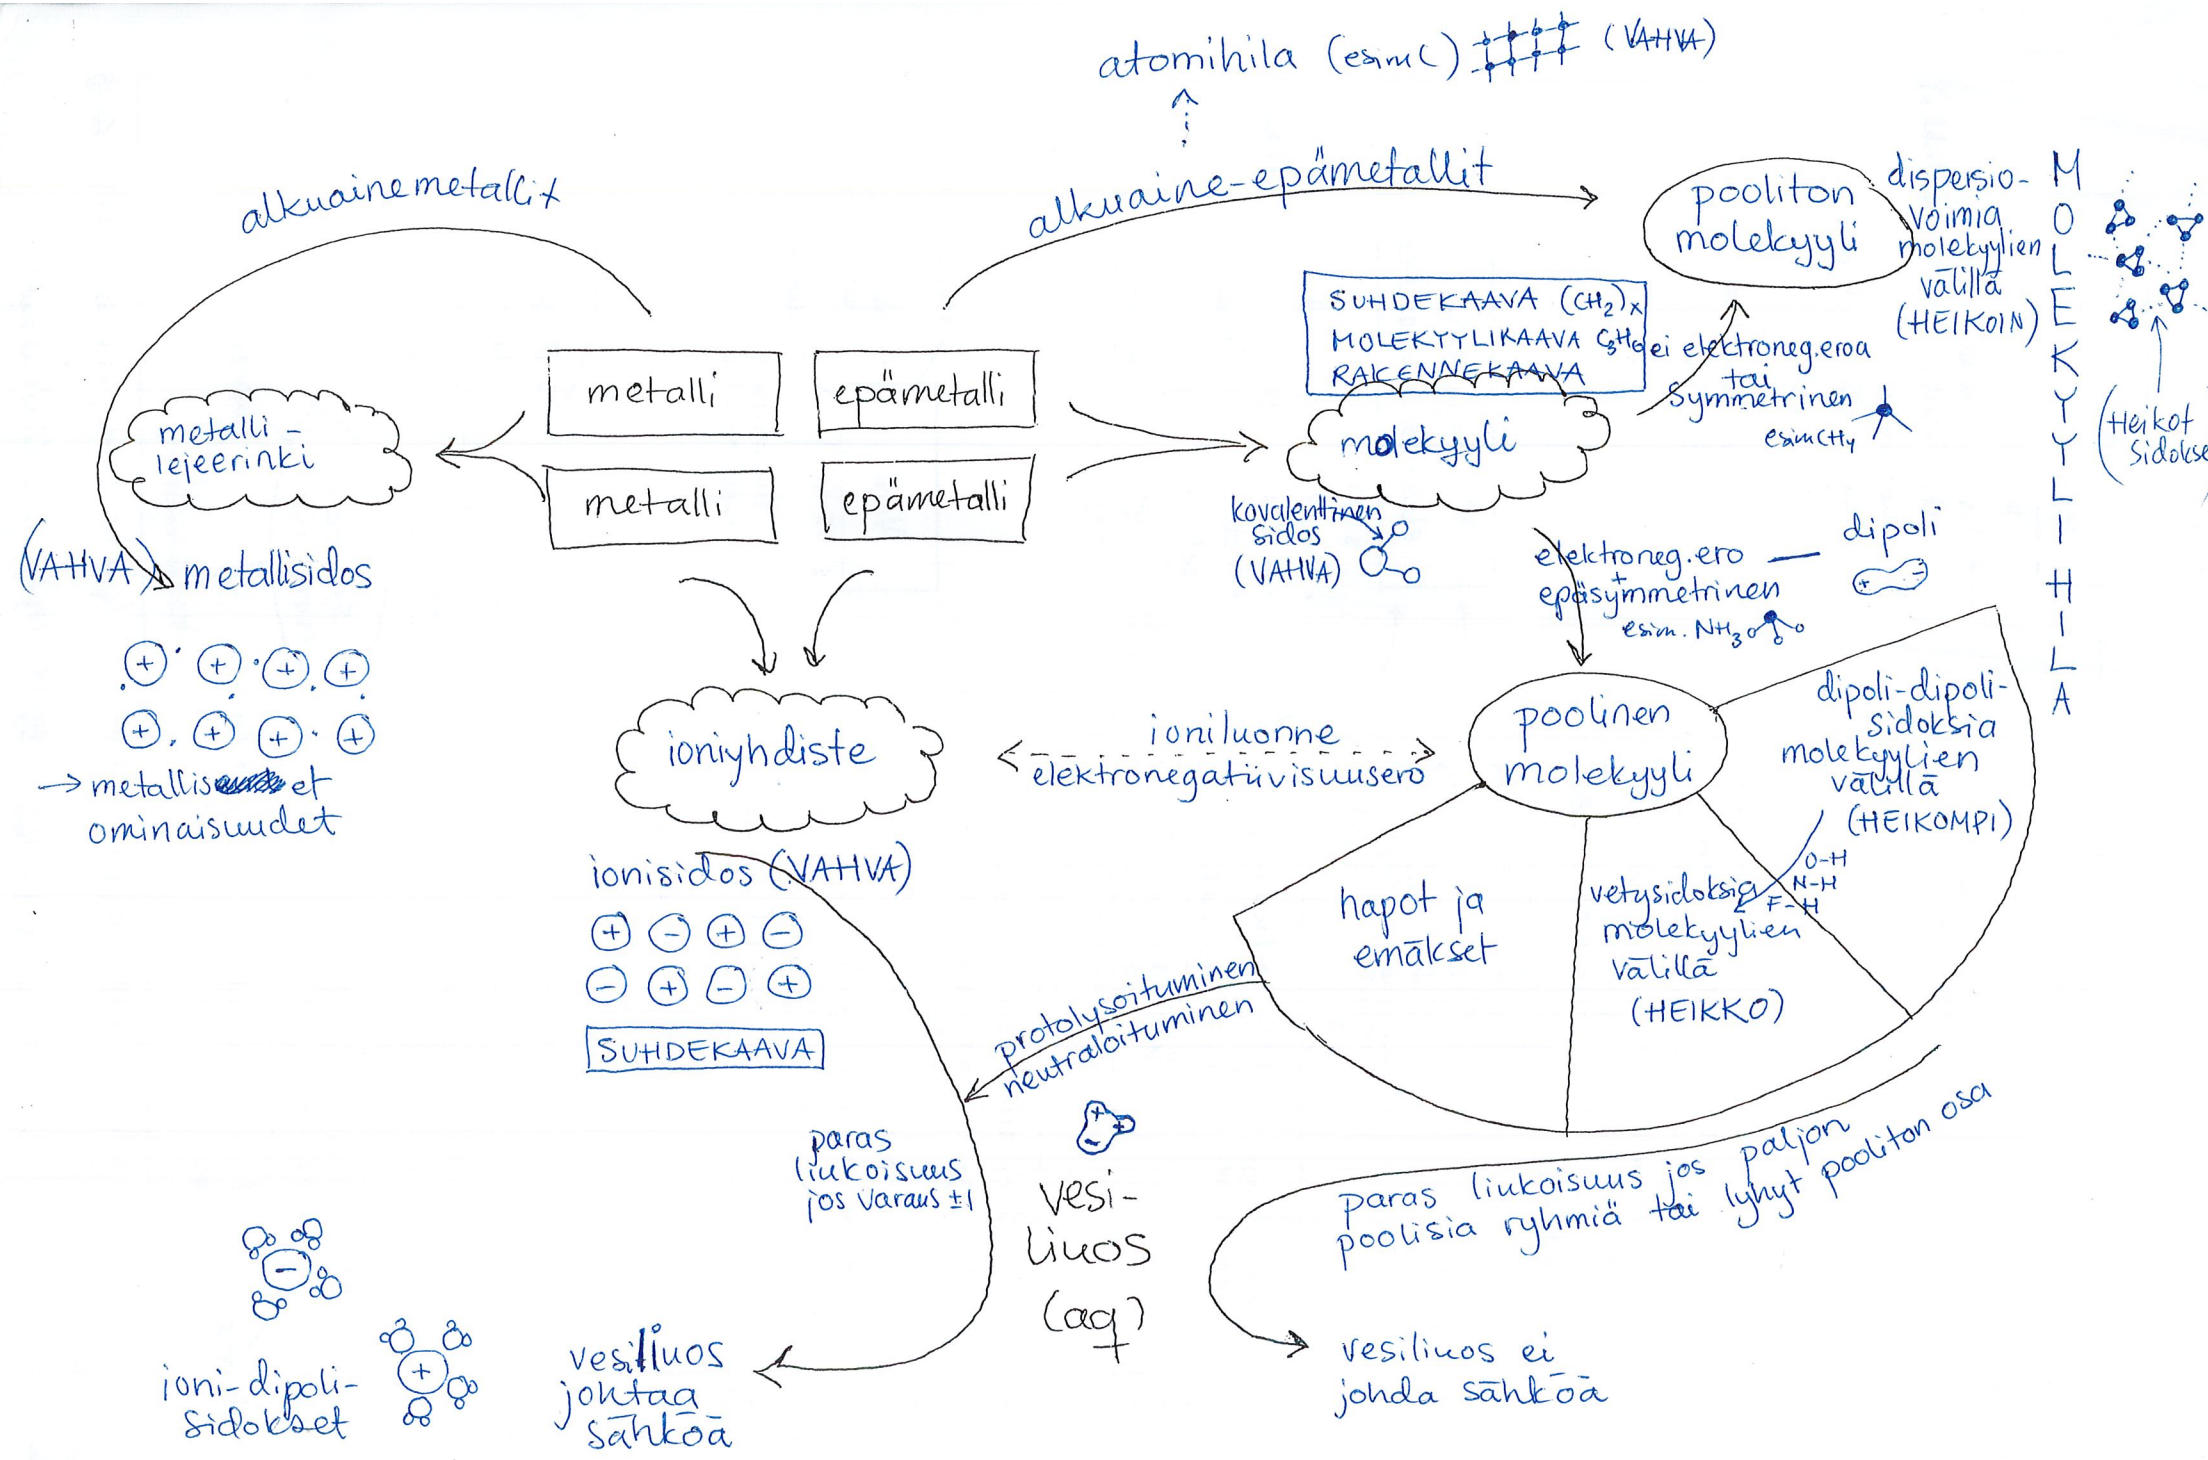 atomihila (esim C) (VAHVA)
alkuainemetallit
alkuaine-epämetallit
pooliton
molekyyli
dispersio-
voimia
molekyylien
välillä
(HEIKOIN)
MOLEKYYLIHILA
(Heikot
sidokse
SUHDEKAAVA (CH₂)ₓ
MOLEKYYLIKAAVA C₃H₆
RAKENNEKAAVA
ei elektroneg.eroa
tai
symmetrinen
esim CH₄
metalli
epämetalli
metalli
epämetalli
metalli-
lejeerinki
molekyyli
kovalenttinen
sidos
(VAHVA)
elektroneg.ero — dipoli
+
epäsymmetrinen
esim. NH₃
+ -
(VAHVA) metallisidos
+ + + +
+ + + +
→ metallis et
ominaisuudet
ioniyhdiste
ioniluonne
elektronegatiivisuusero
poolinen
molekyyli
dipoli-dipoli-
sidoksia
molekyylien
välillä
(HEIKOMPI)
O-H
N-H
F-H
vetysidoksia
molekyylien
välillä
(HEIKKO)
hapot ja
emäkset
ionisidos (VAHVA)
+ - + -
- + - +
SUHDEKAAVA
protolysoituminen
neutraloituminen
paras
liukoisuus
jos varaus ±1
+ +
-
vesi-
liuos
(aq)
paras liukoisuus jos paljon
poolisia ryhmiä tai lyhyt pooliton osa
-
+
ioni-dipoli-
sidokset
vesiliuos
johtaa
sähköä
vesiliuos ei
johda sähköä